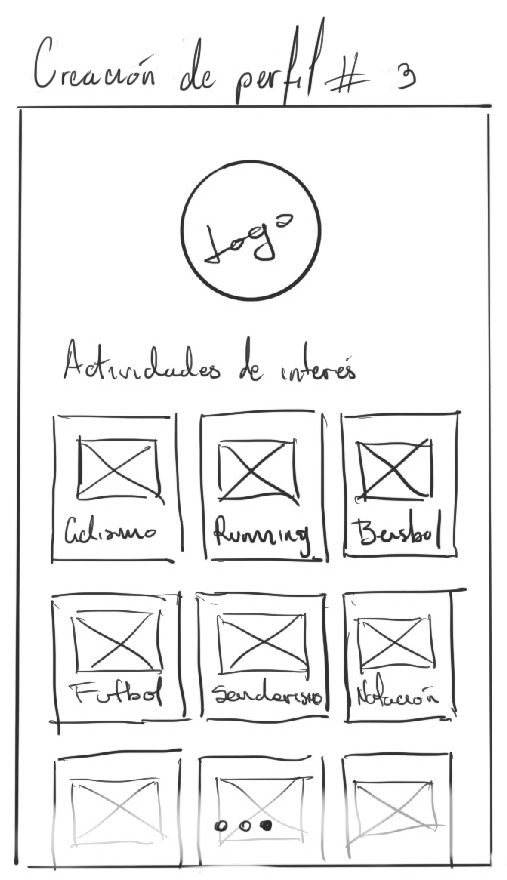 Creación de perfil # 3
Logo
Actividades de interés
Ciclismo Running Beisbol
Futbol Senderismo Natación